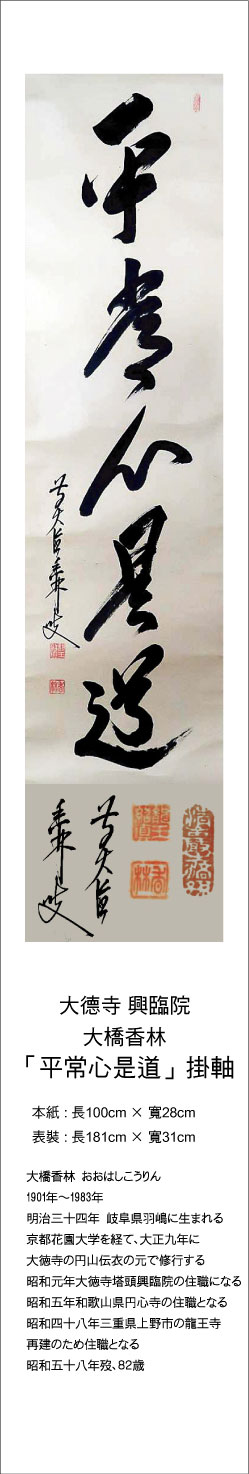 平常心是道
大德寺 興臨院
大橋香林
「平常心是道」掛軸
本紙：長100cm × 寬28cm
表裝：長181cm × 寬31cm
大橋香林 おおはしこうりん
1901年～1983年
明治三十四年 岐阜県羽嶋に生まれる
京都花園大学を経て、大正九年に
大徳寺の円山伝衣の元で修行する
昭和元年大徳寺塔頭興臨院の住職になる
昭和五年和歌山県円心寺の住職となる
昭和四十八年三重県上野市の龍王寺
再建のため住職となる
昭和五十八年歿、82歳